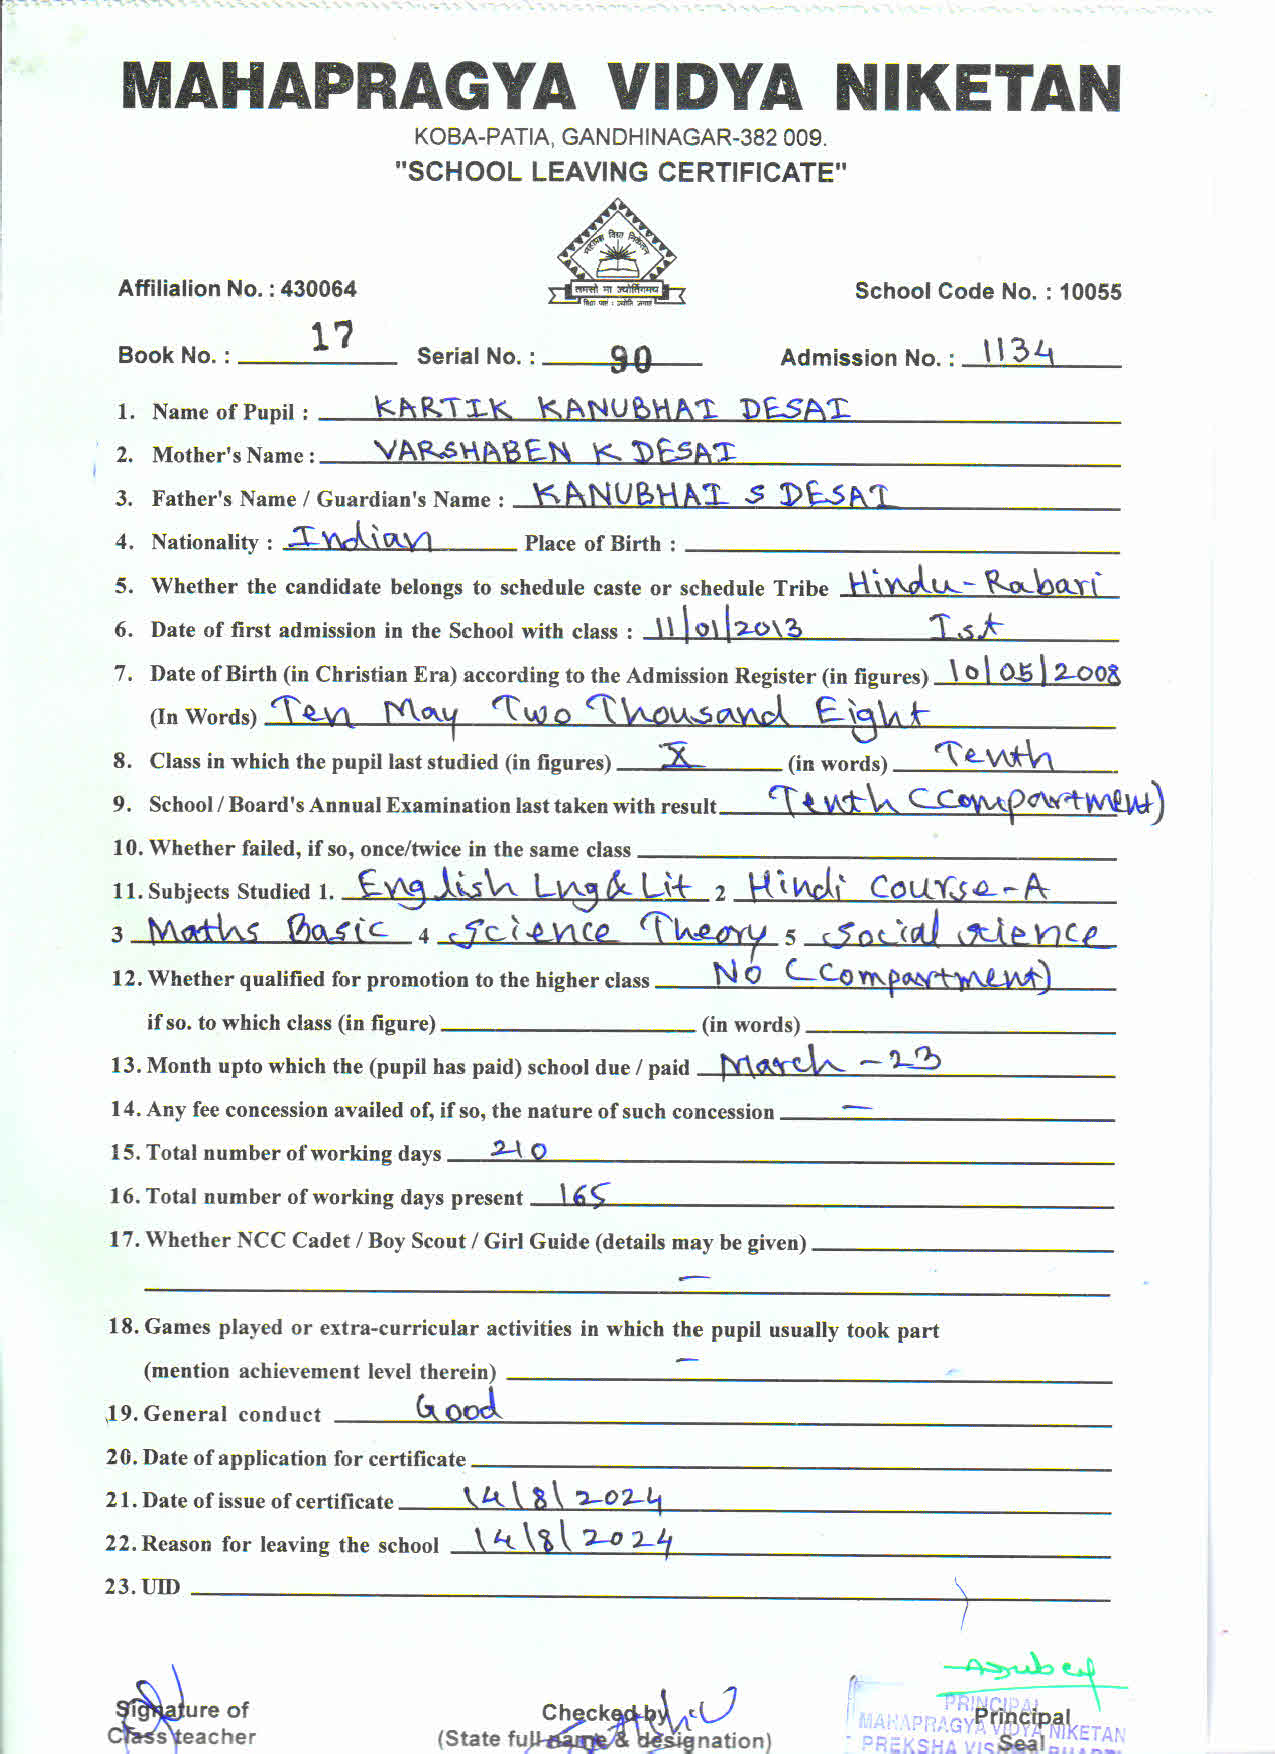 MAHAPRAGYA VIDYA NIKETAN
KOBA-PATIA, GANDHINAGAR-382 009.
"SCHOOL LEAVING CERTIFICATE"
महाप्रज्ञ विद्या निकेतन
तमसो मा ज्योतिर्गमय
Affilialion No. : 430064 School Code No. : 10055
Book No. : 17 Serial No. : 90 Admission No. : 1134
1. Name of Pupil : KARTIK KANUBHAI DESAI
2. Mother's Name : VARSHABEN K DESAI
3. Father's Name / Guardian's Name : KANUBHAI S DESAI
4. Nationality : Indian Place of Birth :
5. Whether the candidate belongs to schedule caste or schedule Tribe Hindu-Rabari
6. Date of first admission in the School with class : 11/01/2013 Ist
7. Date of Birth (in Christian Era) according to the Admission Register (in figures) 10/05/2008
(In Words) Ten May Two Thousand Eight
8. Class in which the pupil last studied (in figures) X (in words) Tenth
9. School / Board's Annual Examination last taken with result Tenth (Compartment)
10. Whether failed, if so, once/twice in the same class
11. Subjects Studied 1. English Lng & Lit 2 Hindi Course-A
3 Maths Basic 4 Science Theory 5 Social sience
12. Whether qualified for promotion to the higher class No (Compartment)
if so. to which class (in figure) (in words)
13. Month upto which the (pupil has paid) school due / paid March - 23
14. Any fee concession availed of, if so, the nature of such concession —
15. Total number of working days 210
16. Total number of working days present 165
17. Whether NCC Cadet / Boy Scout / Girl Guide (details may be given)
—
18. Games played or extra-curricular activities in which the pupil usually took part
(mention achievement level therein) —
19. General conduct Good
20. Date of application for certificate
21. Date of issue of certificate 14/8/2024
22. Reason for leaving the school 14/8/2024
23. UID
Signature of Checked by PRINCIPAL Principal
Class teacher (State full name & designation) MAHAPRAGYA VIDYA NIKETAN Seal
PREKSHA